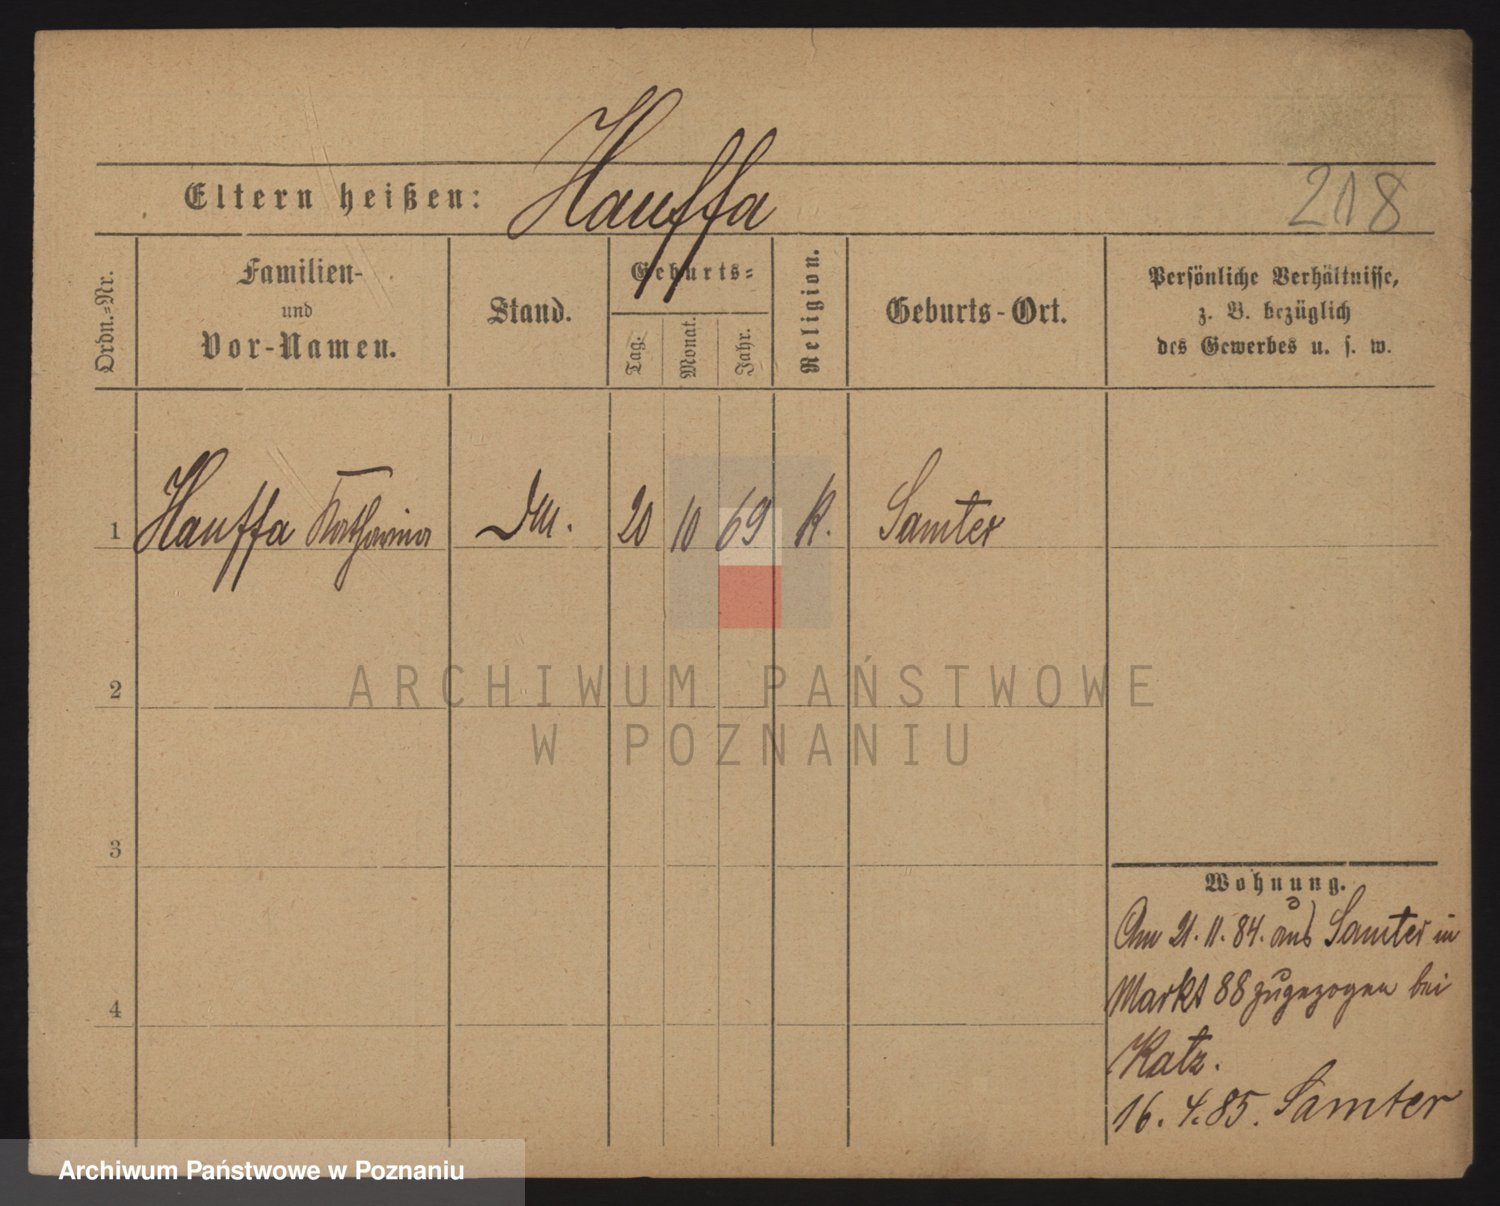 Eltern heißen: Hauffa
218
Ordn.-Nr.
Familien-
und
Vor-Namen.
Stand.
Geburts-
Tag.
Monat.
Jahr.
Religion.
Geburts-Ort.
Persönliche Verhältnisse,
z. B. bezüglich
des Gewerbes u. s. w.
1 Hauffa Katharina 20 10 69 K. Samter
2
3
4
Wohnung.
Am 21. 11. 84. aus Samter in
Markt 88 zugezogen bei
Katz.
16. 4. 85. Samter
ARCHIWUM PAŃSTWOWE
W POZNANIU
Archiwum Państwowe w Poznaniu